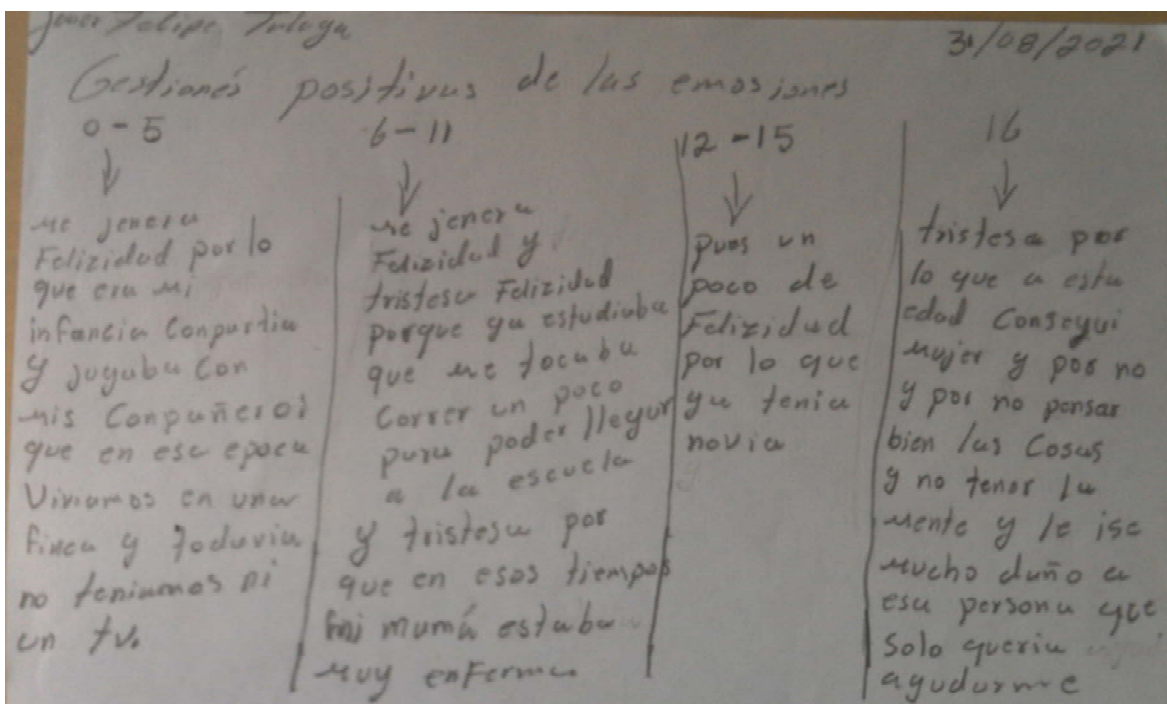 Felipe
31/08/2021
Gestionés positivas de las emosiones
0 - 5
me jenera
Felizidad por lo
que era mi
infancia Conpartia
y jugaba Con
mis Conpañeros
que en esa epoca
Viviamos en una
finca y todavia
no teniamos ni
un tv.
6 - 11
me jenera
Felizidad y
tristesa Felizidad
porque ya estudiaba
que me tocaba
Correr un poco
para poder llegar
a la escuela
y tristesa por
que en esos tiempos
mi mamá estaba
muy enferma
12 - 15
pues un
poco de
Felizidad
por lo que
ya tenia
novia
16
tristesa por
lo que a esta
edad Consegui
mujer y por no
y por no pensar
bien las Cosas
y no tener la
mente y le ise
mucho daño a
esa persona que
solo queria
ayudarme